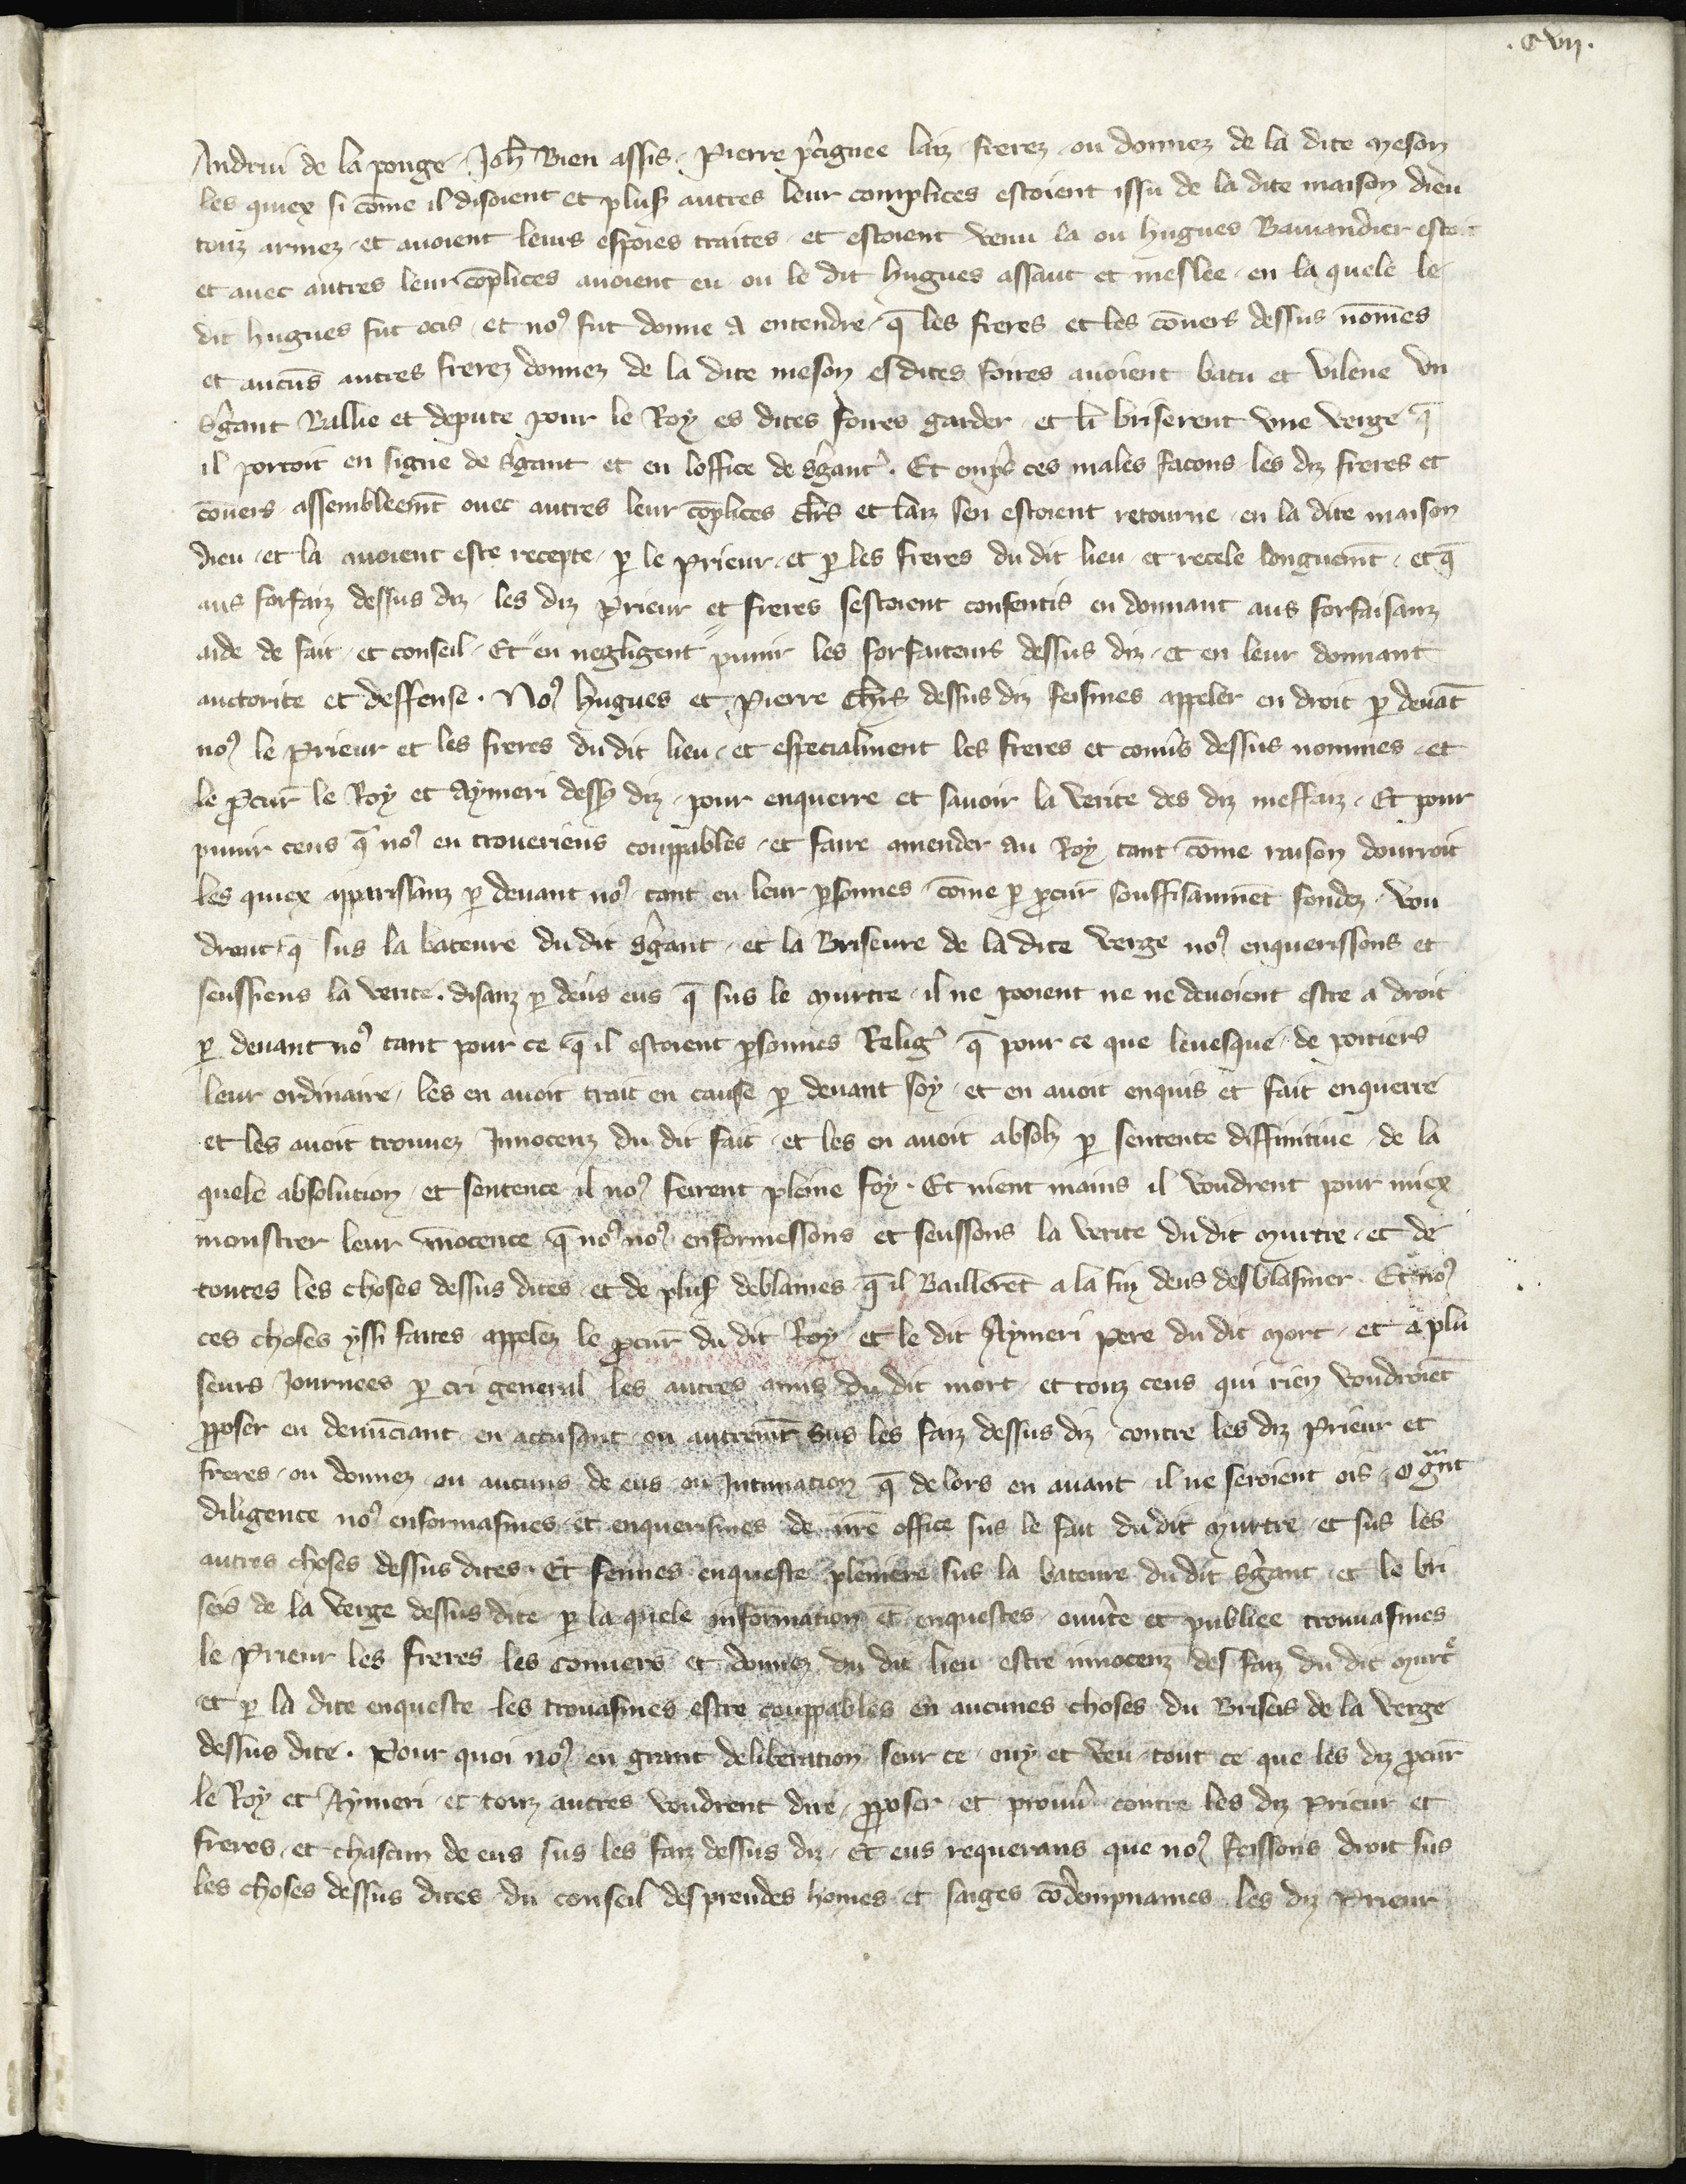 . C vij .
Andriu de la ponge . Joh̄ Bien assis . Pierre p̄cignee laiz frerez ou donnez de la dite meson
les quiex si cōme il disoient et plus̄ autres leur complices estoient issu de la dite maison dieu
touz armez et auoient leurs espoies traites et estoient venu la ou hugues Bauuandier estoit
et auec autres leur cōplices auoient eu ou le dit hugues assaut et meslee en la quele le
dit hugues fut ocis et noꝰ fut donne a entendre q̄ les freres et les cōuers dessus nōmes
et aucūs autres frerez donnez de la dite meson es dites foires auoient batu et vilene vn
s̄gant Ballie et depute pour le Roy es dites foires garder et li briserent vne verge q̄
il portoit en signe de s̄gant et en loffice de s̄gant . Et emp̄s ces males facons les diz freres et
cōuers assembleem̄t ouec autres leur cōplices cl̄rs et laiz sen estoient retourne en la dite maison
dieu et la auoient este recepte ꝑ le Prieur et ꝑ les freres du dit lieu et recele longuem̄t et q̄
aus forfaiz dessus diz les diz Prieur et freres sestoient consentis en donnant aus forfaisanz
aide de fait et conseil Et en negligent punir les forfaiteurs dessus diz et en leur donnant
auctorite et deffense . Noꝰ hugues et Pierre ch̄rs dessus diz feismes appeler en droit ꝑ deuāt
noꝰ le Prieur et les freres du dit lieu et especialment les freres et conūs dessus nommes et
le ꝓcur̄ le Roy et Aymeri dessꝰ diz pour enquerre et sauoir la verite des diz meffaiz . Et pour
punir ceus q̄ noꝰ en troueriens couppables et faire amender au Roy tant cōme raison dourroit
les quiex apparissanz ꝑ deuant noꝰ tant en leur ꝑsonnes cōme ꝑ ꝓcur̄ souffisaumēt fondez vou
drent q̄ sus la bateure du dit s̄gant et la Briseure de la dite verge noꝰ enquerissons et
seussiens la verite . disanz ꝑ deūs eus q̄ sus le murtre il ne pooient ne ne deuoient estre a droit
ꝑ deuant noꝰ tant pour ce q̄ il estoient ꝑsonnes Relig̾ q̄ pour ce que leuesque de poitiers
leur ordinaire les en auoit trait en cause ꝑ deuant soy et en auoit enquis et fait enquerre
et les auoit trouuez Innocenz du dit fait et les en auoit absolz ꝑ sentente diffinitiue de la
quele absolution et sentence il noꝰ feirent pleine foy . Et nient mains il voudrent pour miex
monstrer leur innocence q̄ noꝰ noꝰ enformessons et seussons la verite du dit murtre et de
toutes les choses dessus dites et de plus̄ deblames q̄ il Baillerēt a la fin deus desblasmer . Et noꝰ
ces choses yssi faites appelez le ꝓcur̄ du dit Roy et le dit Aymeri pere du dit mort et a plu
seurs Journees ꝑ cri general les autres amis du dit mort et touz ceus qui rien voudroiēt
ꝓposer en denūciant en accusant ou autrem̄t sus les faiz dessus diz contre les diz Prieur et
freres ou donnez ou aucuns de eus ou Intimation q̄ de lors en auant il ne seroient ois o gᵃnt
diligence noꝰ enformasmes et enquerismes de nr̄e office sus le fait du dit murtre et sus les
autres choses dessus dites . Et feimes enqueste pleniere sus la bateure du dit s̄gant et le bri
seis de la verge dessus dite ꝑ la quele information et enquestes ouūte et publiee trouuasmes
le Prieur les freres les conuers et donnez du dit lieu estre innocenz des faiz du dit murt̾
et ꝑ la dite enqueste les trouasmes estre couppables en aucunes choses du Briseis de la verge
dessus dite . Pour quoi noꝰ eu grant deliberation seur ce ouy et veu tout ce que les diz ꝓcur̄
le Roy et Aymeri et touz autres voudrent dire ꝓposer et prouū contre les diz Prieur et
freres et chascun de eus sus les faiz dessus diz Et eus requerans que noꝰ feissons droit sus
les choses dessus dites du conseil des preudes homes et saiges cōdempnames les diz Prieur